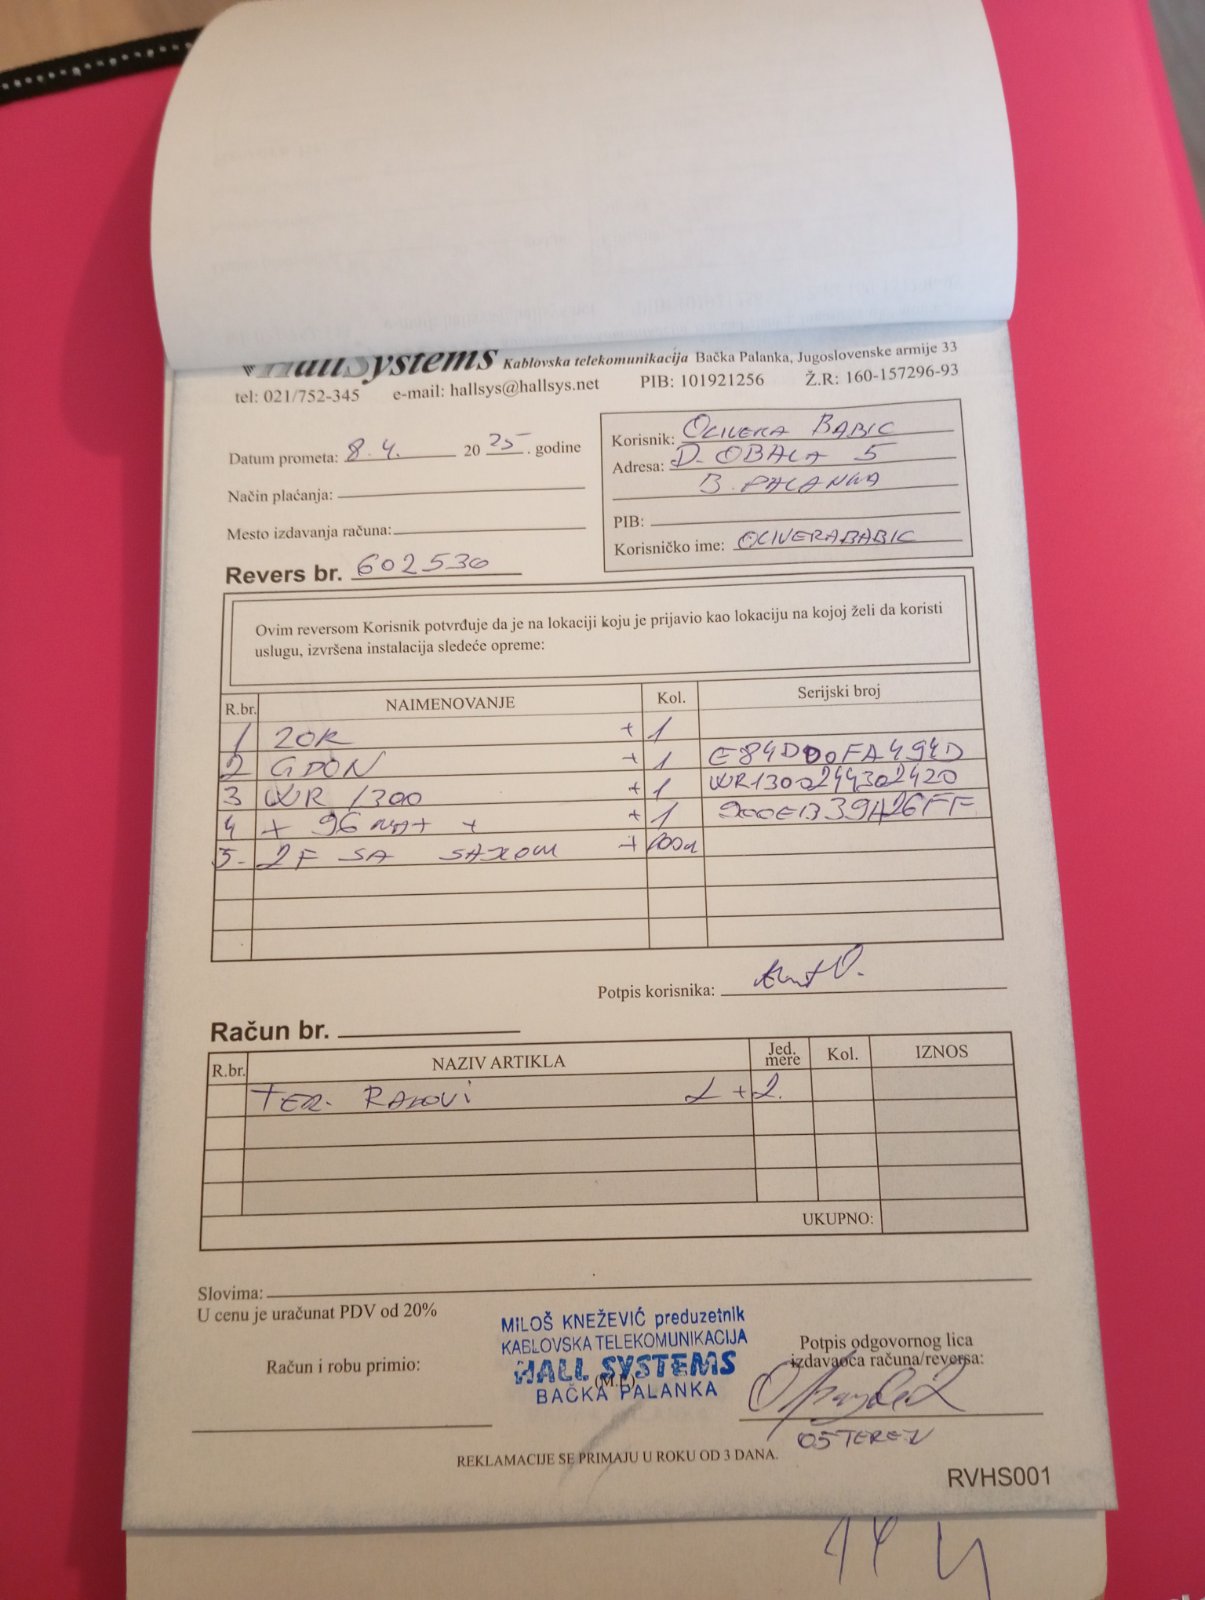 HallSystems Kablovska telekomunikacija Bačka Palanka, Jugoslovenske armije 33
tel: 021/752-345 e-mail: hallsys@hallsys.net PIB: 101921256 Ž.R: 160-157296-93
Datum prometa: 8.4. 20 25 . godine
Način plaćanja:
Mesto izdavanja računa:
Revers br. 602530
Korisnik: OLIVERA BABIC
Adresa: D. OBALA 5
B. PALANKA
PIB:
Korisničko ime: OLIVERABABIC
Ovim reversom Korisnik potvrđuje da je na lokaciji koju je prijavio kao lokaciju na kojoj želi da koristi
uslugu, izvršena instalacija sledeće opreme:
R.br. NAIMENOVANJE Kol. Serijski broj
1 ZOK + 1
2 GPON + 1 E84D00FA494D
3 WR 1300 + 1 WR1300244302420
4 + 1
5. 2F SA SAJLOM +
Potpis korisnika:
Račun br.
R.br. NAZIV ARTIKLA Jed. mere Kol. IZNOS
TER. RADOVI 2 + 2.
UKUPNO:
Slovima:
U cenu je uračunat PDV od 20%
Račun i robu primio:
MILOŠ KNEŽEVIĆ preduzetnik
KABLOVSKA TELEKOMUNIKACIJA
HALL SYSTEMS
(M.P.)
BAČKA PALANKA
Potpis odgovornog lica
izdavaoca računa/reversa:
05 TEREN
REKLAMACIJE SE PRIMAJU U ROKU OD 3 DANA.
RVHS001